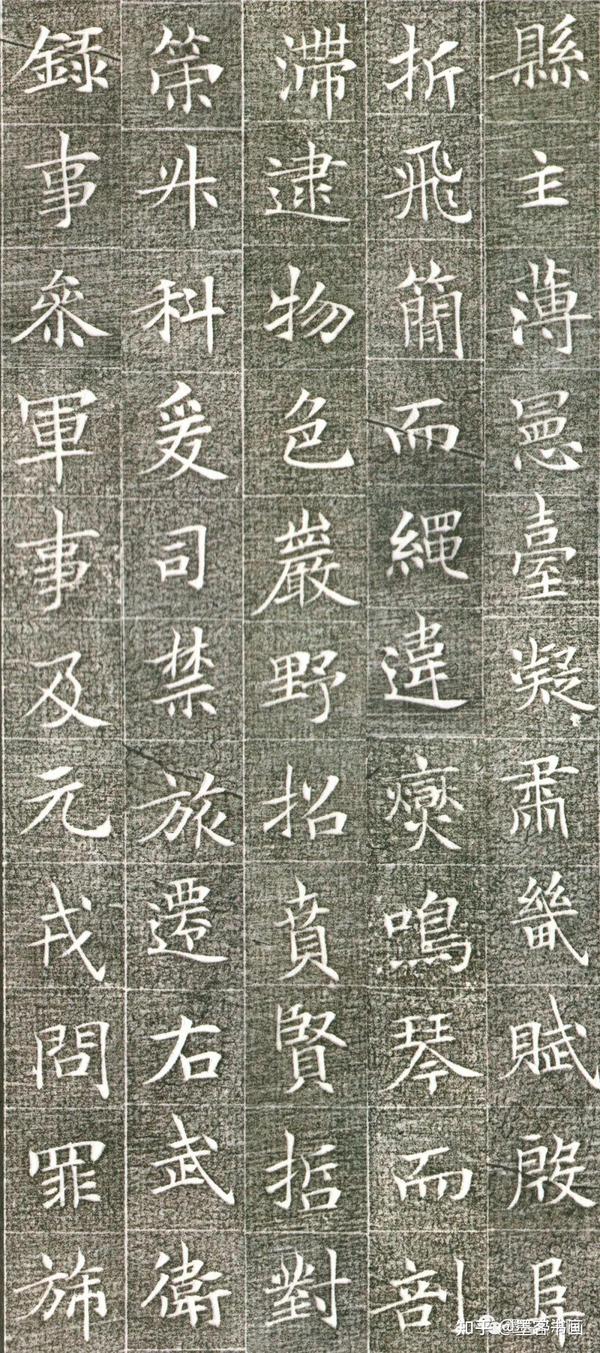 縣主薄憲臺凝肅畿賦殷阜
折飛簡而繩違爕鳴琴而剖
滯逮物色巖野招賁賢哲對
策升科爰司禁旅遷右武衛
録事叅軍事及元戎問罪斾
知乎 @墨客书画